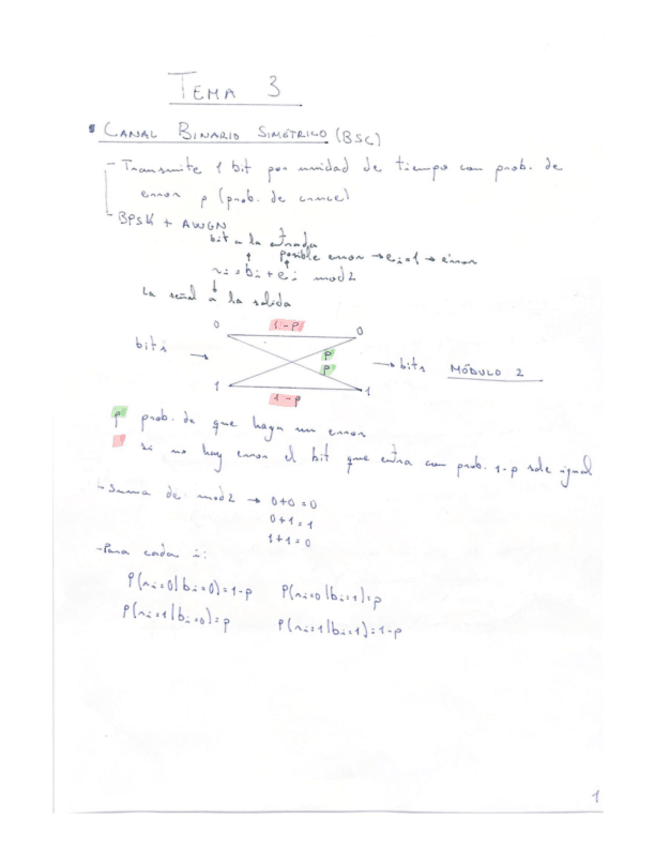 TEMA 3
CANAL BINARIO SIMÉTRICO (BSC)
- Transmite 1 bit por unidad de tiempo con prob. de
error p (prob. de cruce)
- BPSK + AWGN
bit a la entrada
posible error → ei=1 → error
ri = bi + ei mod2
La señal a la salida
0 1-p 0
bits → p → bits MÓDULO 2
p
1 1-p 1
p prob. de que haya un error
si no hay error el bit que entra con prob. 1-p sale igual
- Suma de mod2 → 0+0=0
0+1=1
1+1=0
- Para cada i:
P(ri=0|bi=0)=1-p P(ri=0|bi=1)=p
P(ri=1|bi=0)=p P(ri=1|bi=1)=1-p
1